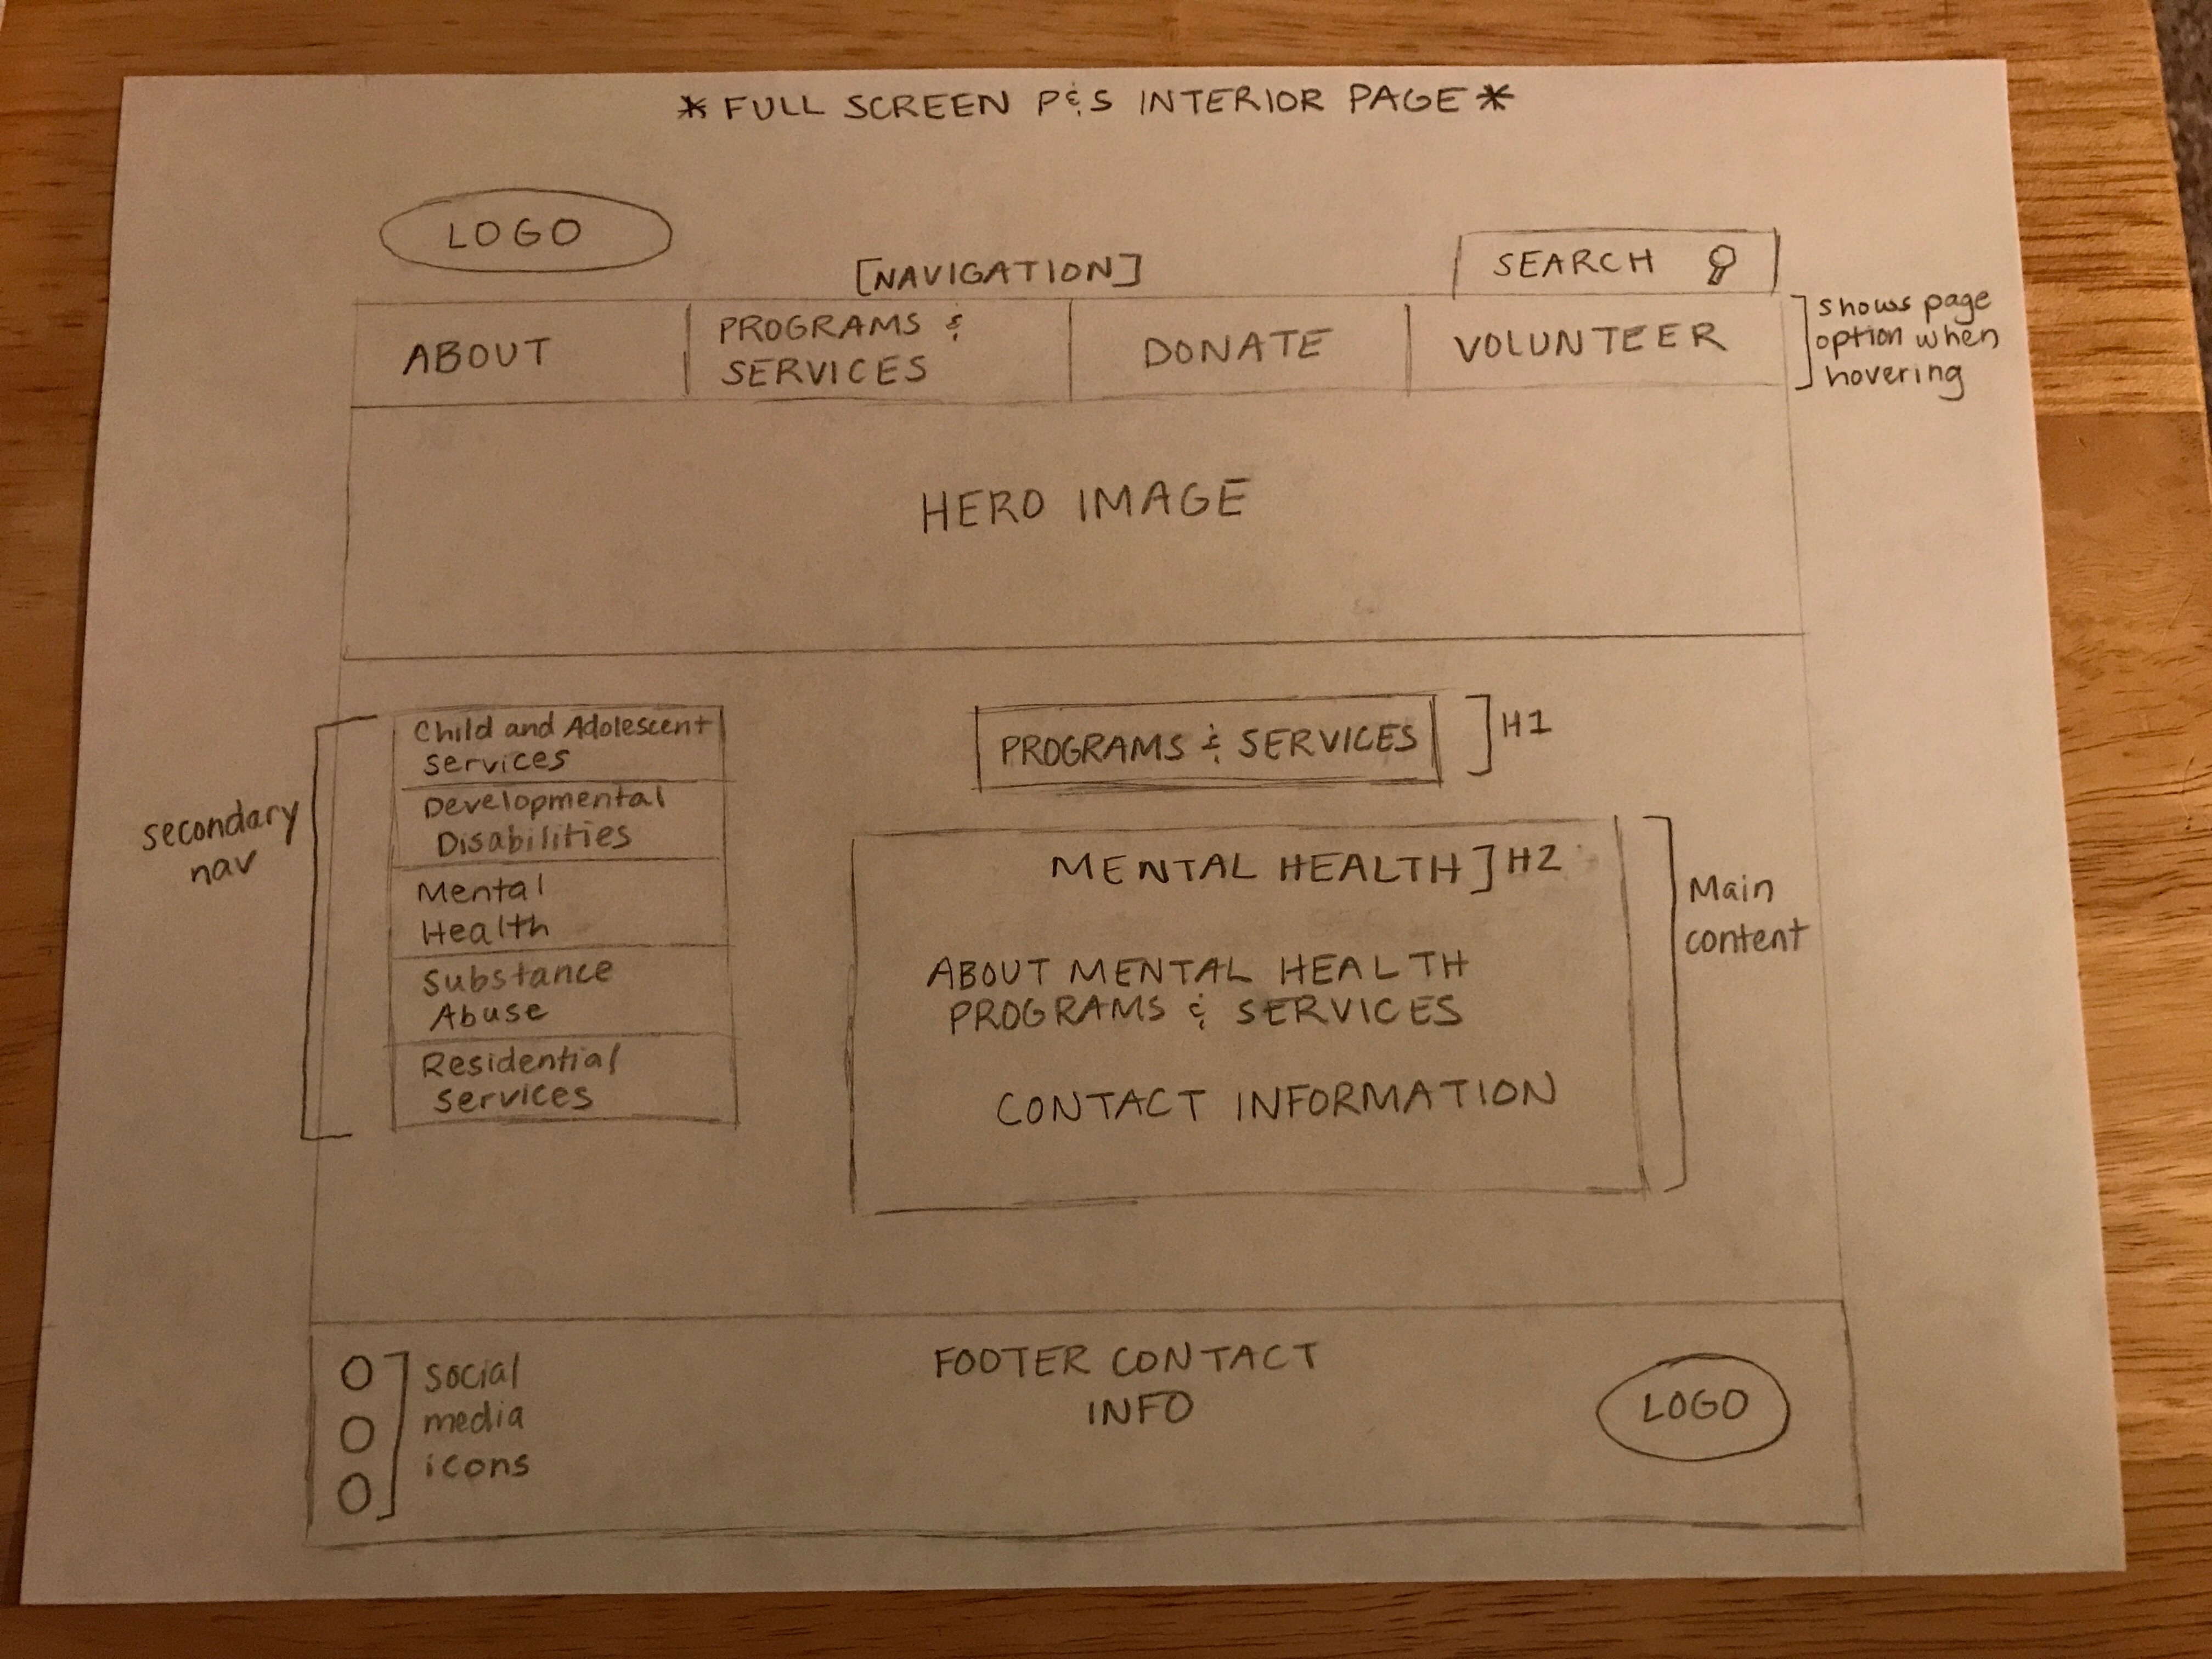 *FULL SCREEN P&S INTERIOR PAGE*
LOGO
[NAVIGATION]
SEARCH
ABOUT
PROGRAMS &
SERVICES
DONATE
VOLUNTEER
shows page
option when
hovering
HERO IMAGE
secondary
nav
Child and Adolescent
services
Developmental
Disabilities
Mental
Health
Substance
Abuse
Residential
services
PROGRAMS & SERVICES
H1
MENTAL HEALTH] H2
ABOUT MENTAL HEALTH
PROGRAMS & SERVICES
CONTACT INFORMATION
Main
content
social
media
icons
FOOTER CONTACT
INFO
LOGO